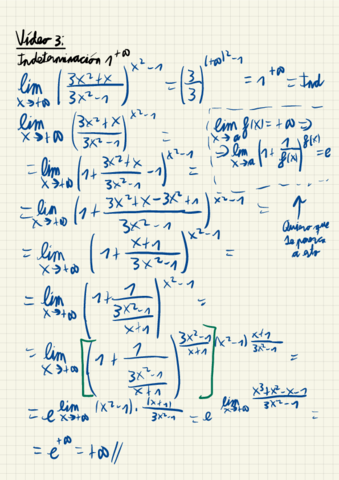 Vídeo 3:
Indeterminación 1^{+∞}
lim_{x→+∞} ((3x²+x)/(3x²-1))^{x²-1} = (3/3)^{(+∞)²-1} = 1^{+∞} = Ind
lim_{x→+∞} ((3x²+x)/(3x²-1))^{x²-1} =
lim_{x→a} f(x) = +∞ ⇒
⇒ lim_{x→a} (1 + 1/f(x))^{f(x)} = e
= lim_{x→+∞} (1 + (3x²+x)/(3x²-1) - 1)^{x²-1} =
= lim_{x→+∞} (1 + (3x²+x-3x²+1)/(3x²-1))^{x²-1} =
↑
Quiero que
se parezca
a esto
= lim_{x→+∞} (1 + (x+1)/(3x²-1))^{x²-1} =
= lim_{x→+∞} (1 + 1/((3x²-1)/(x+1)))^{x²-1} =
= lim_{x→+∞} [(1 + 1/((3x²-1)/(x+1)))^{(3x²-1)/(x+1)}]^{(x²-1) (x+1)/(3x²-1)} =
= e^{lim_{x→+∞} (x²-1)·(x+1)/(3x²-1)} = e^{lim_{x→+∞} (x³+x²-x-1)/(3x²-1)} =
= e^{+∞} = +∞ //